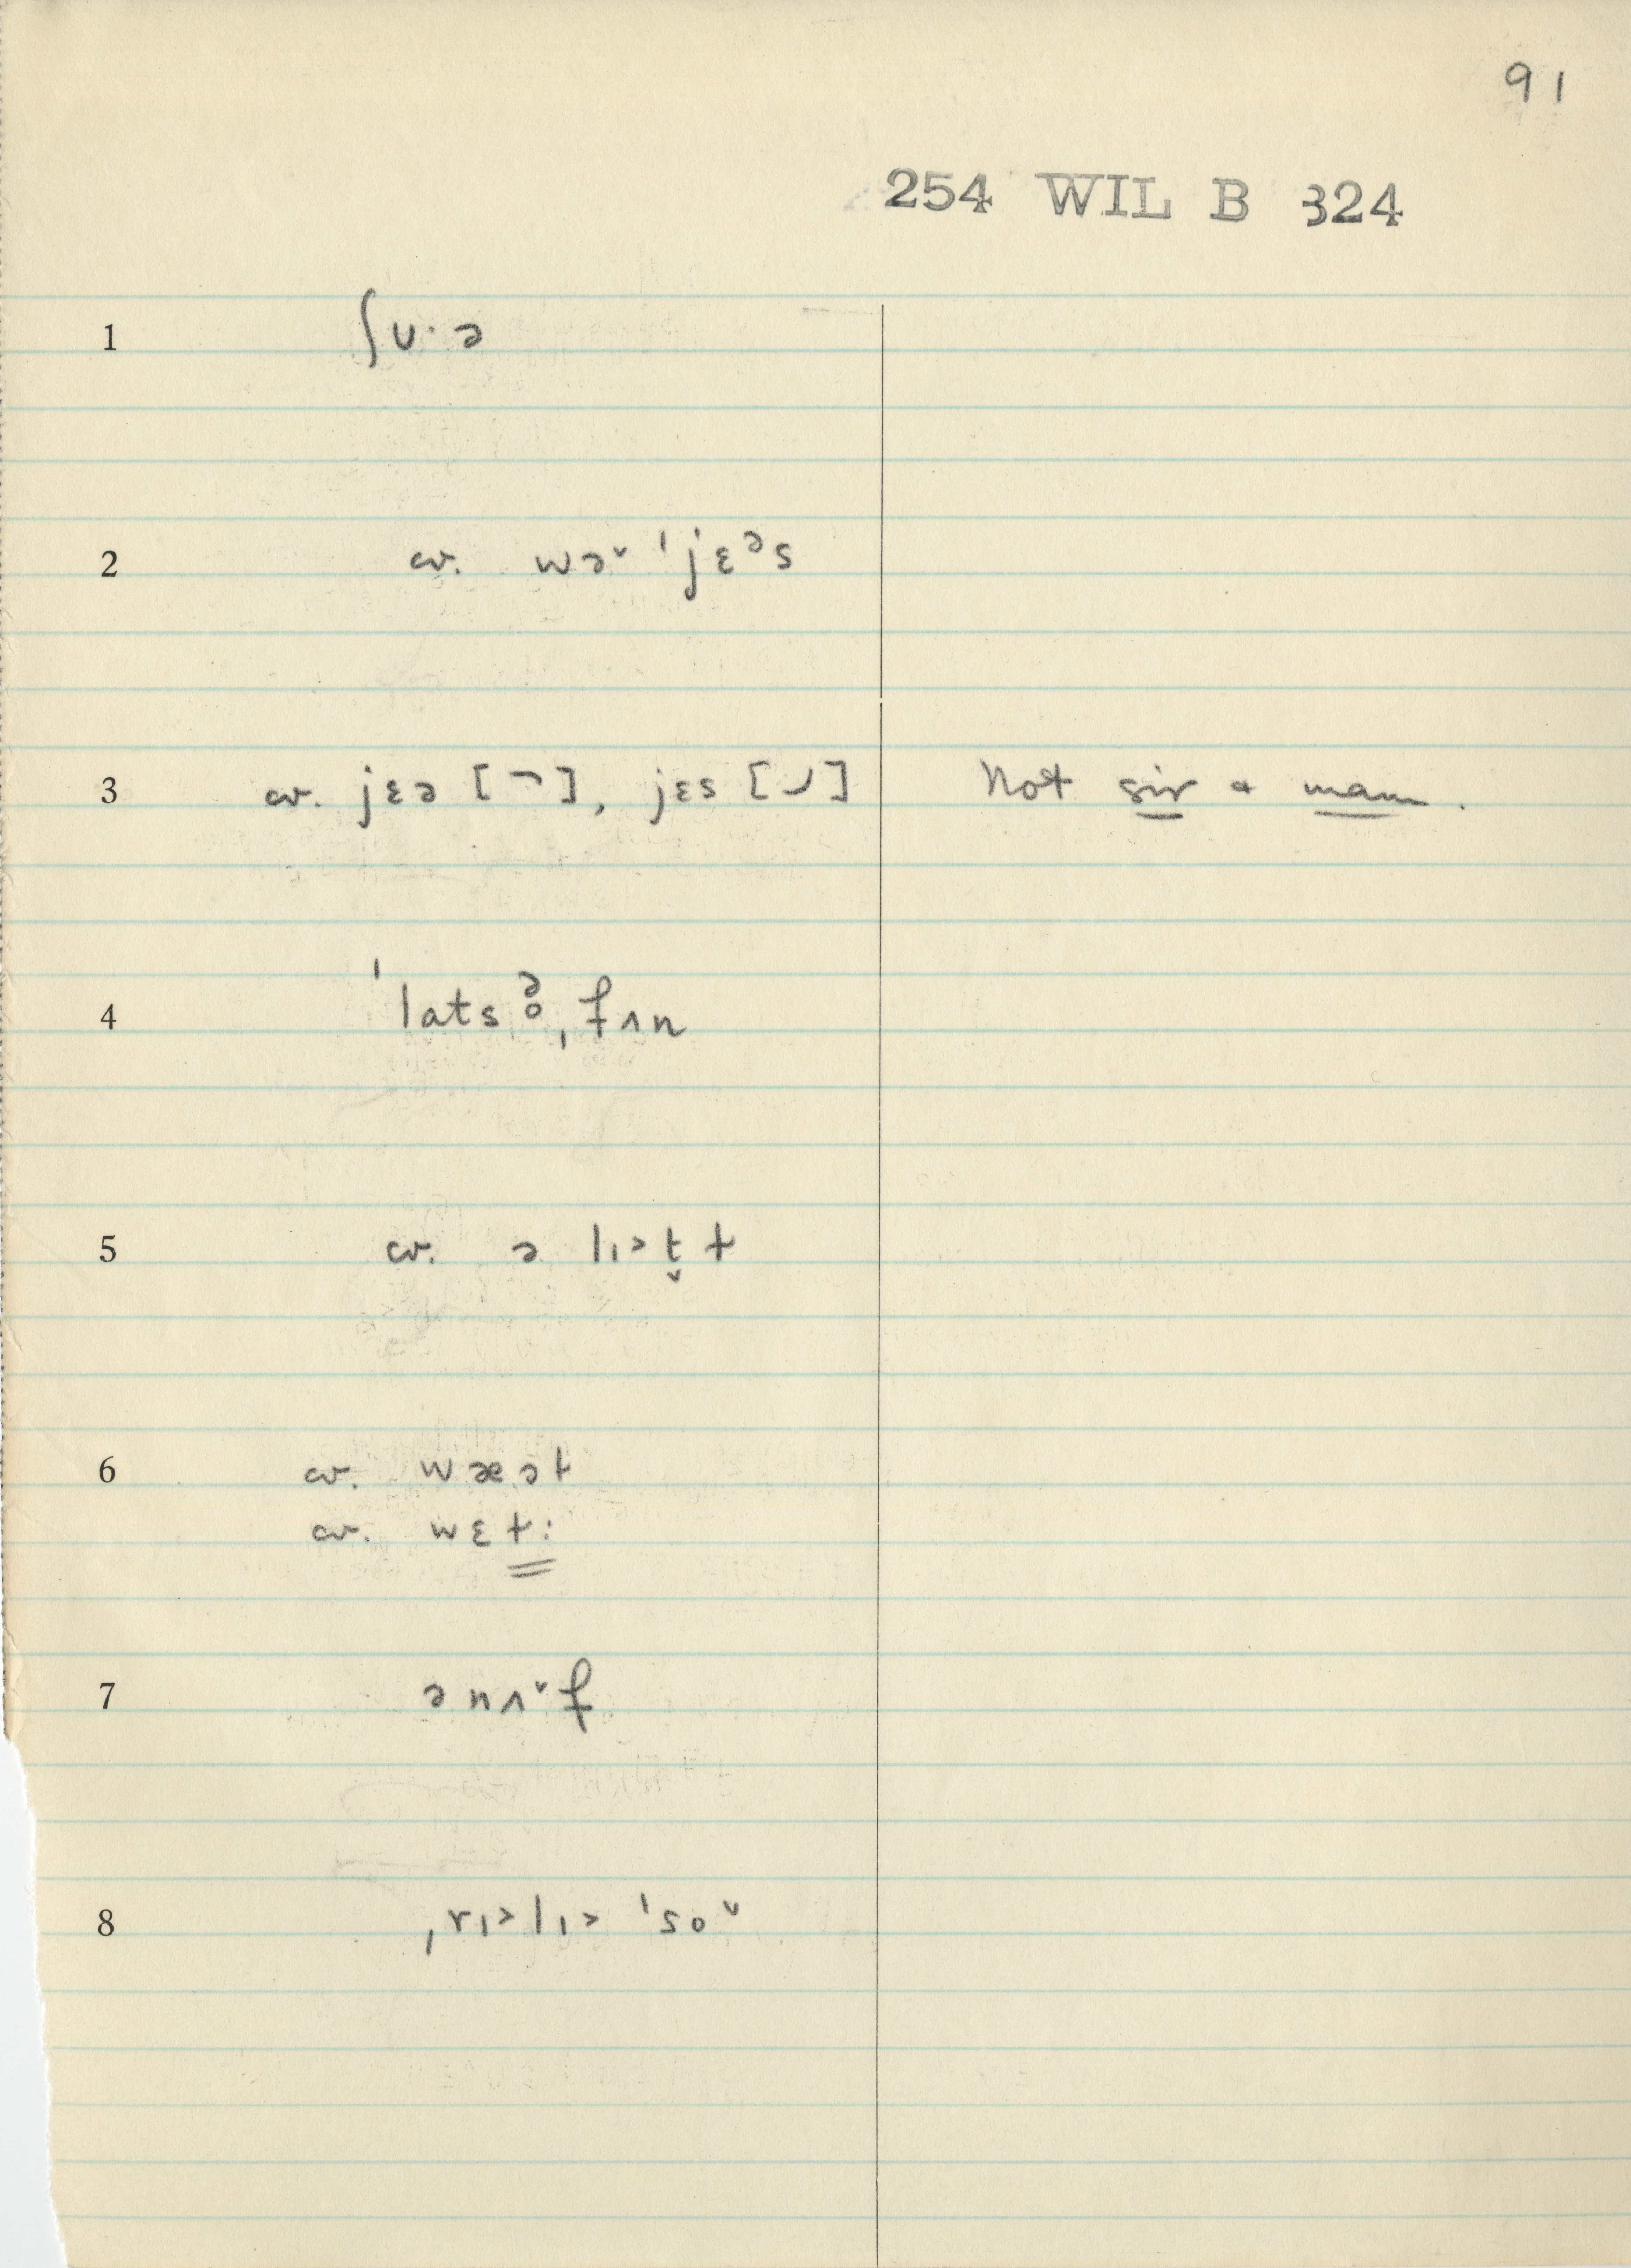 91
254 WIL B 324
1 ʃᴜ·ə
2 cv. wə˅ ˈjɛᵊs
3 cv. jɛə [¬], jɛs [⌣] Not sir & mam.
4 ˈlats ə̥ ˌfʌn
5 cv. ə lɪ˃t̬ ɫ
6 cv. wæət
cv. wɛɫ:
7 ənʌ˅f
8 ˌrɪ˃lɪ˃ ˈso˅